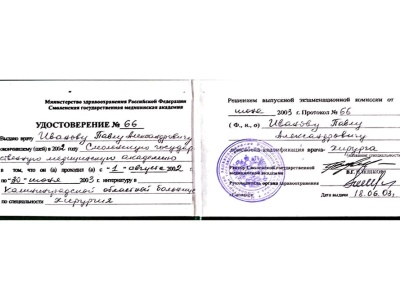 Министерство здравоохранения Российской Федерации
Смоленская государственная медицинская академия
УДОСТОВЕРЕНИЕ № 66
Выдано врачу Иванову Павлу Александровичу
окончившему (шей) в 2002 году Смоленскую государ
ственную медицинскую академию
в том, что он (а) прошел (а) с "1" августа 2002 г.
по "30" июня 2003 г. интернатуру в
Калининградской областной больнице
по специальности хирургия
Решением выпускной экзаменационной комиссии от
июня 2003 г. Протокол № 66
(Ф., и., о) Иванову Павлу
Александровичу
присвоена квалификация врача- хирурга
название специальности
Ректор Смоленской государственной
медицинской академии
Руководитель органа здравоохранения
г. Смоленск
Дата выдачи 18.06.03г.